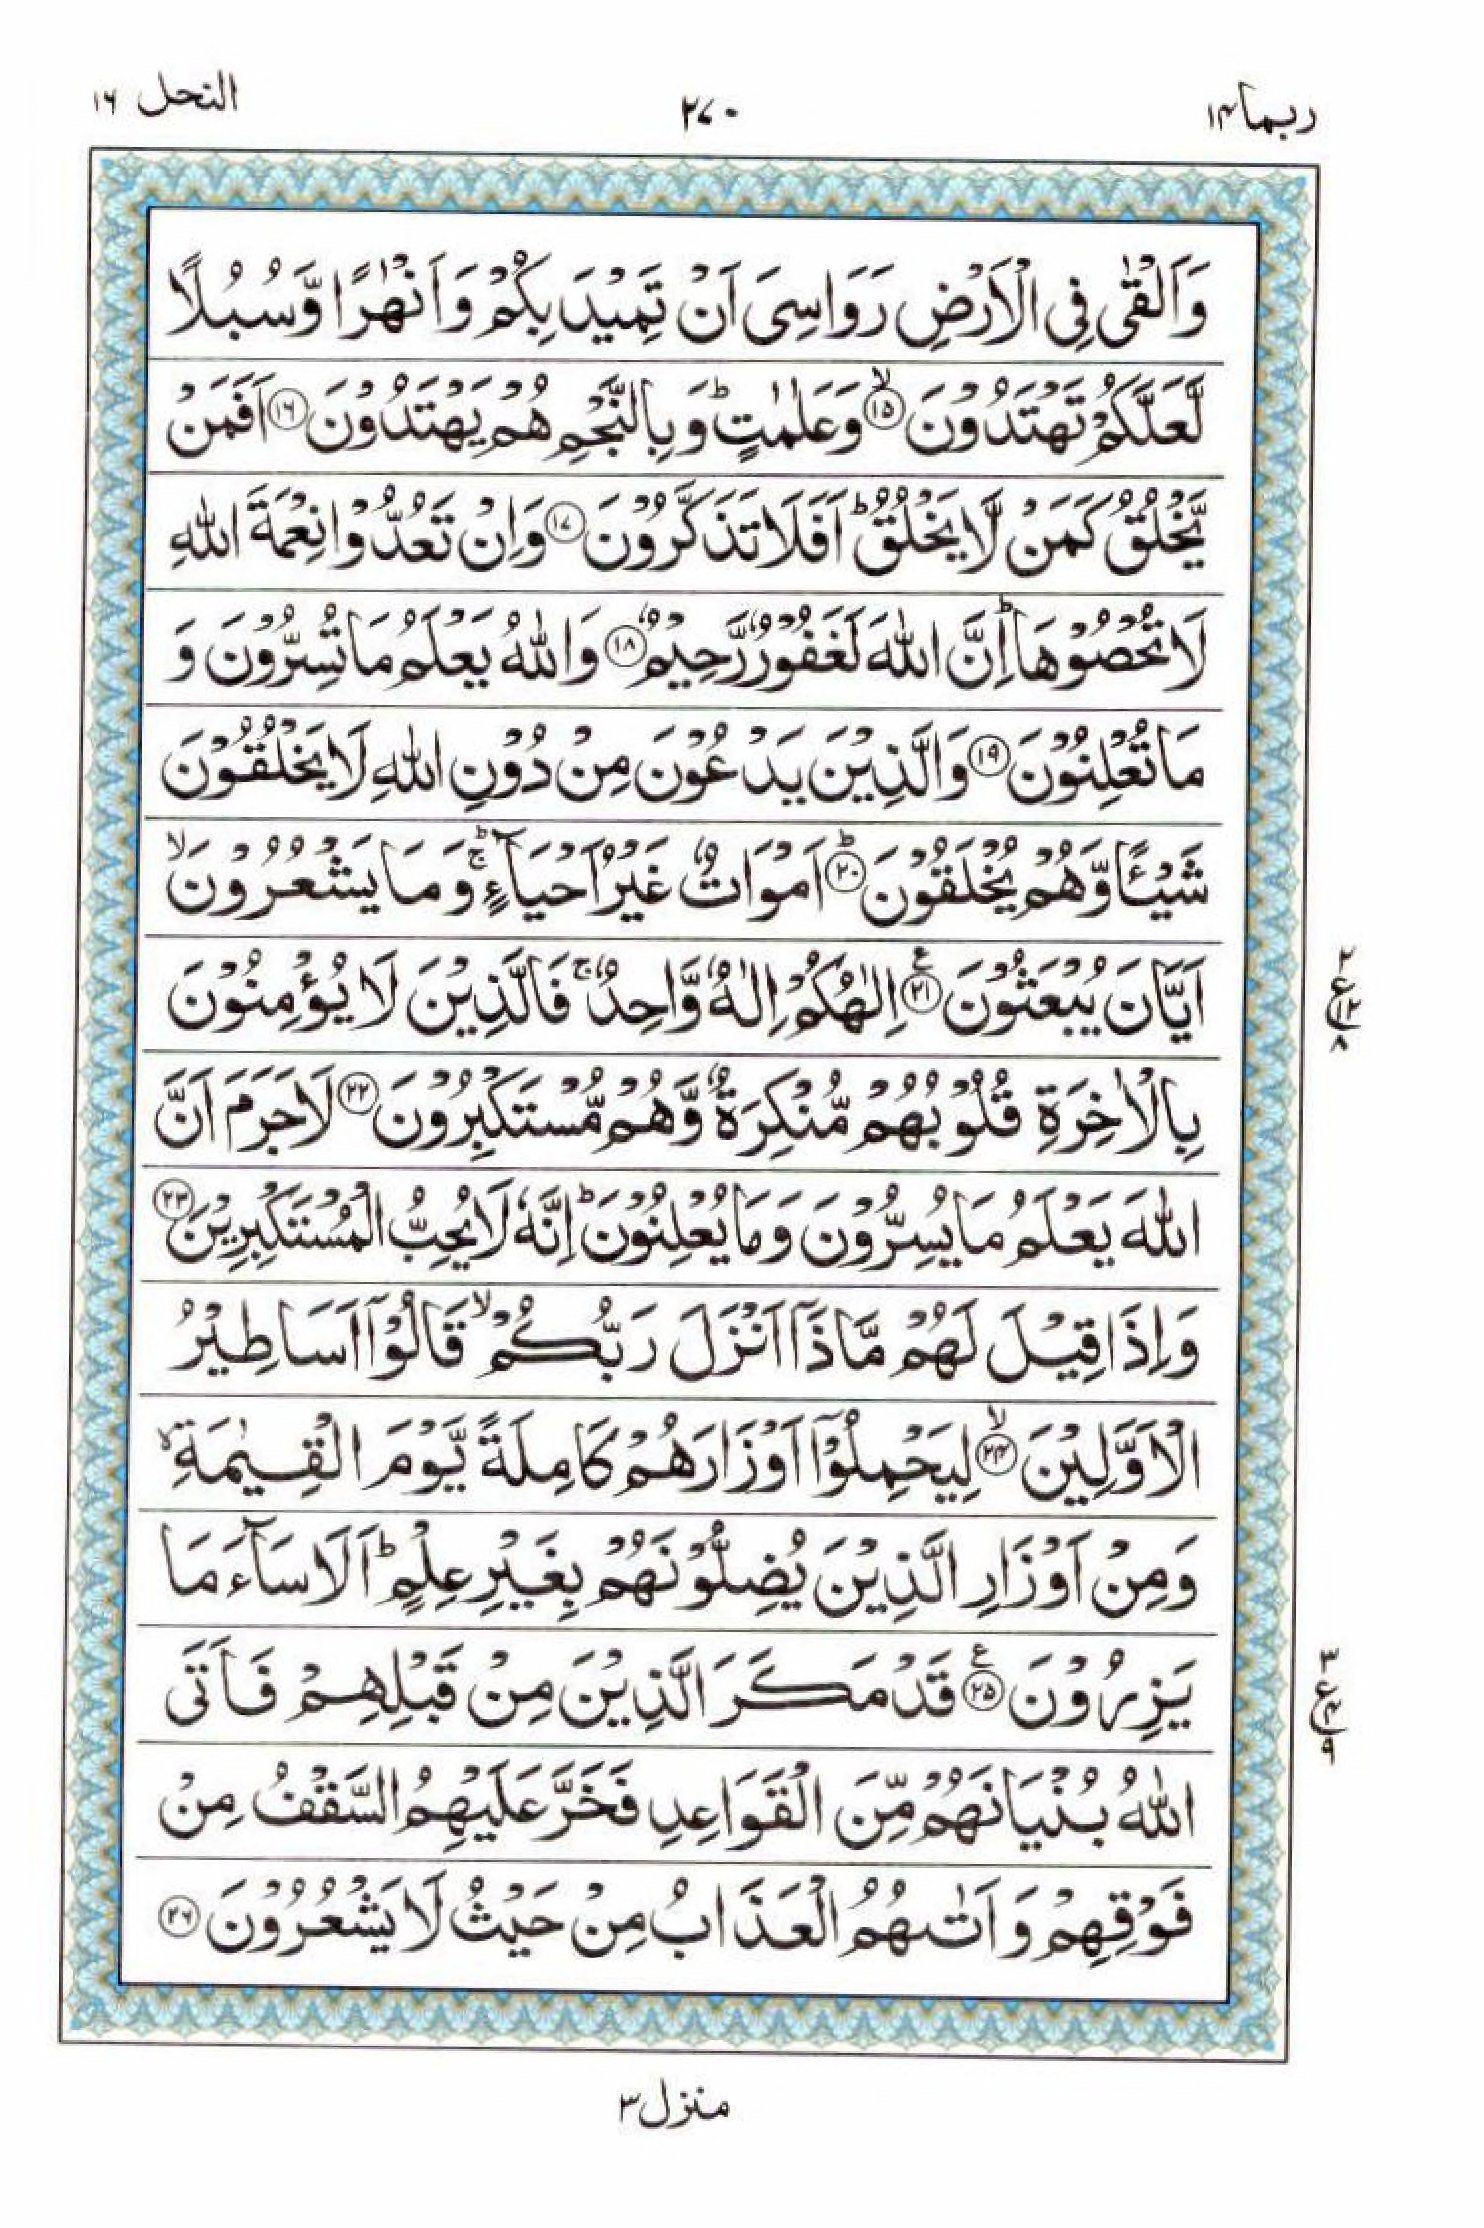 ربما ١۴
٢٧٠
النحل ١٦
وَاَلْقٰى فِى الْاَرْضِ رَوَاسِىَ اَنْ تَمِيْدَ بِكُمْ وَاَنْهٰرًا وَّسُبُلًا
لَّعَلَّكُمْ تَهْتَدُوْنَ ۙ‏﴿۱۵﴾ وَعَلٰمٰتٍ ؕ وَبِالنَّجْمِ هُمْ يَهْتَدُوْنَ ﴿۱۶﴾ اَفَمَنْ
يَّخْلُقُ كَمَنْ لَّا يَخْلُقُ ؕ اَفَلَا تَذَكَّرُوْنَ ﴿۱۷﴾ وَاِنْ تَعُدُّوْا نِعْمَةَ اللّٰهِ
لَا تُحْصُوْهَا ؕ اِنَّ اللّٰهَ لَغَفُوْرٌ رَّحِيْمٌ ﴿۱۸﴾ وَاللّٰهُ يَعْلَمُ مَا تُسِرُّوْنَ وَ
مَا تُعْلِنُوْنَ ﴿۱۹﴾ وَالَّذِيْنَ يَدْعُوْنَ مِنْ دُوْنِ اللّٰهِ لَا يَخْلُقُوْنَ
شَيْـًٔا وَّهُمْ يُخْلَقُوْنَ ؕ ﴿۲۰﴾ اَمْوَاتٌ غَيْرُ اَحْيَآءٍ ۚ ؕ وَمَا يَشْعُرُوْنَ ۙ
اَيَّانَ يُبْعَثُوْنَ ﴿۲۱﴾ ع اِلٰهُكُمْ اِلٰهٌ وَّاحِدٌ ۚ فَالَّذِيْنَ لَا يُؤْمِنُوْنَ
٢
ع
١٢
٨
بِالْاٰخِرَةِ قُلُوْبُهُمْ مُّنْكِرَةٌ وَّهُمْ مُّسْتَكْبِرُوْنَ ﴿۲۲﴾ لَا جَرَمَ اَنَّ
اللّٰهَ يَعْلَمُ مَا يُسِرُّوْنَ وَمَا يُعْلِنُوْنَ ؕ اِنَّهٗ لَا يُحِبُّ الْمُسْتَكْبِرِيْنَ ﴿۲۳﴾
وَاِذَا قِيْلَ لَهُمْ مَّاذَاۤ اَنْزَلَ رَبُّكُمْ ۙ قَالُوْۤا اَسَاطِيْرُ
الْاَوَّلِيْنَ ۙ ﴿۲۴﴾ لِيَحْمِلُوْۤا اَوْزَارَهُمْ كَامِلَةً يَّوْمَ الْقِيٰمَةِ ۙ
وَمِنْ اَوْزَارِ الَّذِيْنَ يُضِلُّوْنَهُمْ بِغَيْرِ عِلْمٍ ؕ اَلَا سَآءَ مَا
يَزِرُوْنَ ﴿۲۵﴾ ع قَدْ مَكَرَ الَّذِيْنَ مِنْ قَبْلِهِمْ فَاَتَى
٣
ع
۴
٩
اللّٰهُ بُنْيَانَهُمْ مِّنَ الْقَوَاعِدِ فَخَرَّ عَلَيْهِمُ السَّقْفُ مِنْ
فَوْقِهِمْ وَاَتٰىهُمُ الْعَذَابُ مِنْ حَيْثُ لَا يَشْعُرُوْنَ ﴿۲۶﴾
منزل ٣